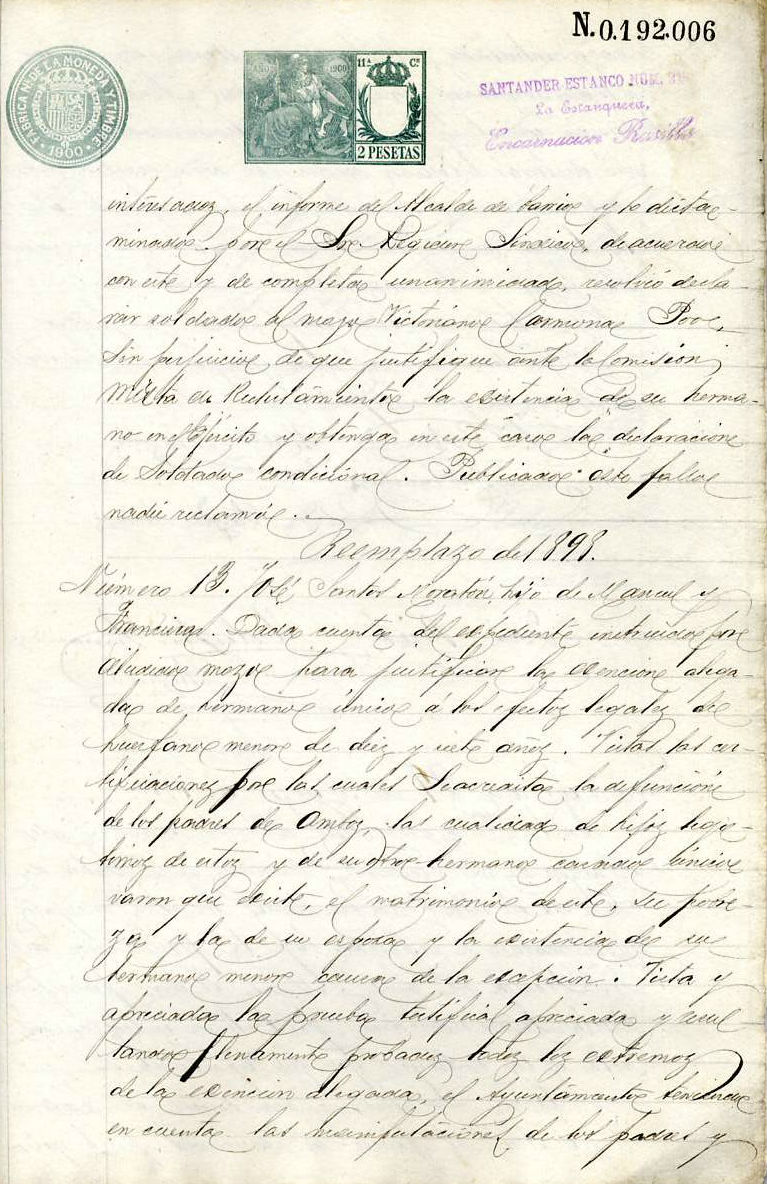 N.0.192.006
FÁBRICA N. DE LA MONEDA Y TIMBRE
1900
AÑO 1900
11ª Cᵉ
2 PESETAS
SANTANDER ESTANCO NUM.
La Estanquera,
Encarnacion
interesados, el informe del Alcalde de barrio y lo dicta-
minado por el Sr Regidor Sindico, de acuerdo
con este y de completa unanimidad, resolvió decla-
rar soldado al mozo Victoriano Carmona Poo,
sin perjuicio de que justifique ante la Comisión
Mixta de Reclutamiento la existencia de su herma-
no en Ejército y obtenga en este caso la declaracion
de Soldado condicional. Publicado este fallo
nadie reclamó.
Reemplazo de 1898.
Número 13. José Santos Moratón, hijo de Manuel y
Francisca. Dada cuenta del expediente instruido por
dicho mozo para justificar la exención alega-
da de hermano único á los efectos legales de
huerfano menor de diez y siete años. Vistas las cer-
tificaciones por las cuales se acredita la defunción
de los padres de ambos, la cualidad de hijos legí-
timos de estos y de su otro hermano casado único
varon que existe, el matrimonio de este, su pobre-
za y la de su esposa y la existencia de su
hermano menor causa de la excepción. Vista y
apreciada la prueba testifical apreciada y resul-
tando plenamente probados todos los extremos
de la exencion alegada, el Ayuntamiento teniendo
en cuenta las manifestaciones de los padres y